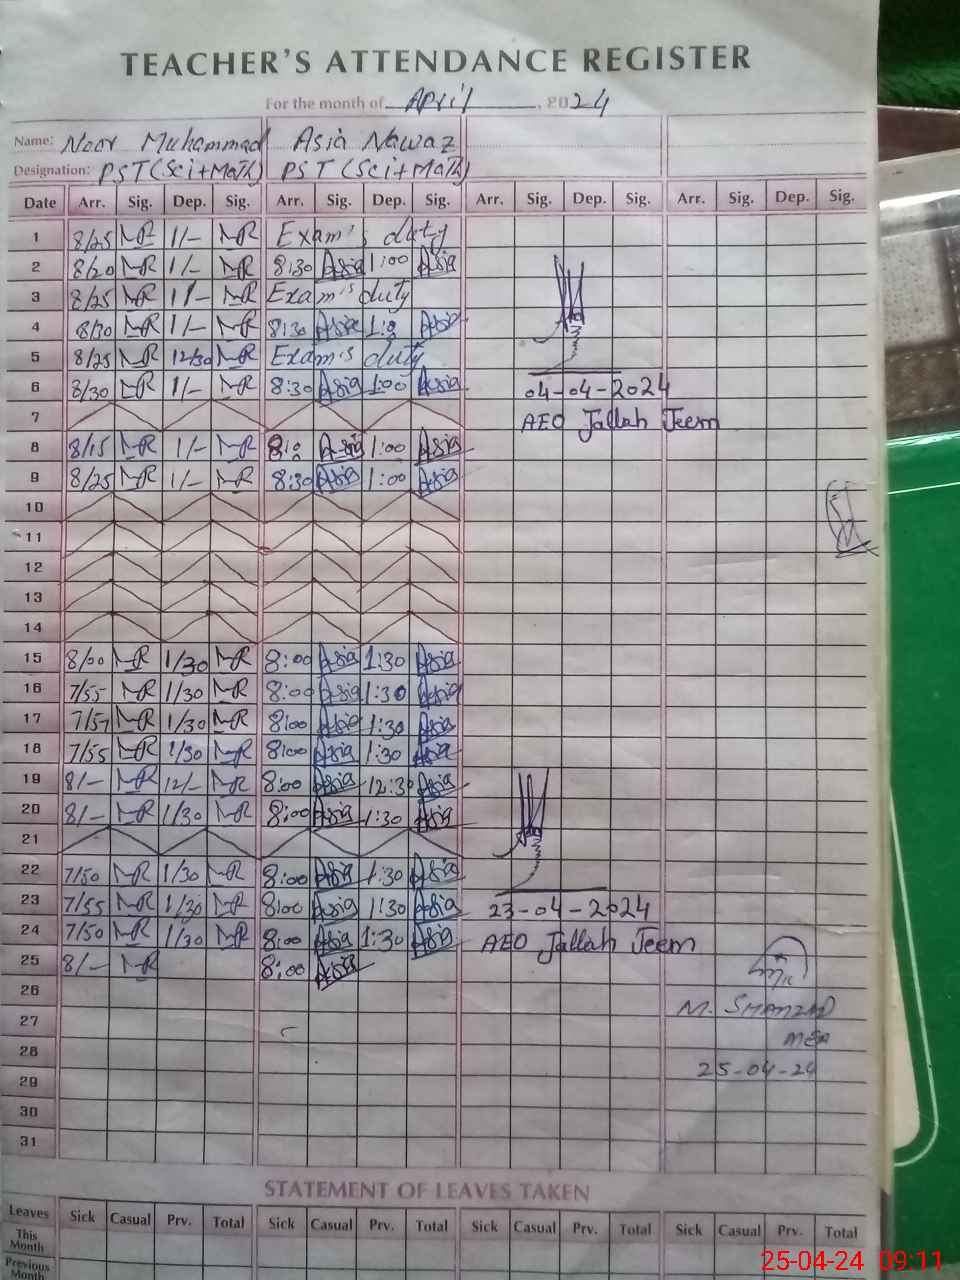 TEACHER'S ATTENDANCE REGISTER
For the month of April, 2024
Name: Noor Muhammad Asia Nawaz
Designation: PST (Sci+Math) PST (Sci+Math)
Date Arr. Sig. Dep. Sig. Arr. Sig. Dep. Sig. Arr. Sig. Dep. Sig. Arr. Sig. Dep. Sig.
1 8/25 NR 1/- NR Exam's duty
2 8/20 NR 1/- NR 8:30 Asia 1:00 Asia
3 8/25 NR 1/- NR Exam's duty
4 8/30 NR 1/- NR 8:30 Asia Asia
5 8/25 NR 12/30 NR Exam's duty
6 8/30 NR 1/- NR 8:30 Asia 1:00 Asia 04-04-2024
7 AEO Jallah Jeem
8 8/15 NR 1/- NR Asia 1:00 Asia
9 8/25 NR 1/- NR 8:30 Asia 1:00 Asia
10
11
12
13
14
15 8/00 NR 1/30 NR 8:00 Asia 1:30 Asia
16 7/55 NR 1/30 NR 8:00 Asia 1:30 Asia
17 7/57 NR 1/30 NR 8:00 Asia 1:30 Asia
18 7/55 NR 1/30 NR 8:00 Asia 1:30 Asia
19 8/- NR 12/- NR 8:00 Asia 12:30 Asia
20 8/- NR 1/30 NR 8:00 Asia 1:30 Asia
21
22 7/50 NR 1/30 NR 8:00 Asia 1:30 Asia
23 7/55 NR 1/30 NR 8:00 Asia 1:30 Asia 23-04-2024
24 7/50 NR 1/30 NR 8:00 Asia 1:30 Asia AEO Jallah Jeem
25 8/- NR 8:00 Asia
26 M. SHAHZAD
27 MEA
28 25-04-24
29
30
31
STATEMENT OF LEAVES TAKEN
Leaves Sick Casual Prv. Total Sick Casual Prv. Total Sick Casual Prv. Total Sick Casual Prv. Total
This Month
Previous Month
25-04-24 09:11